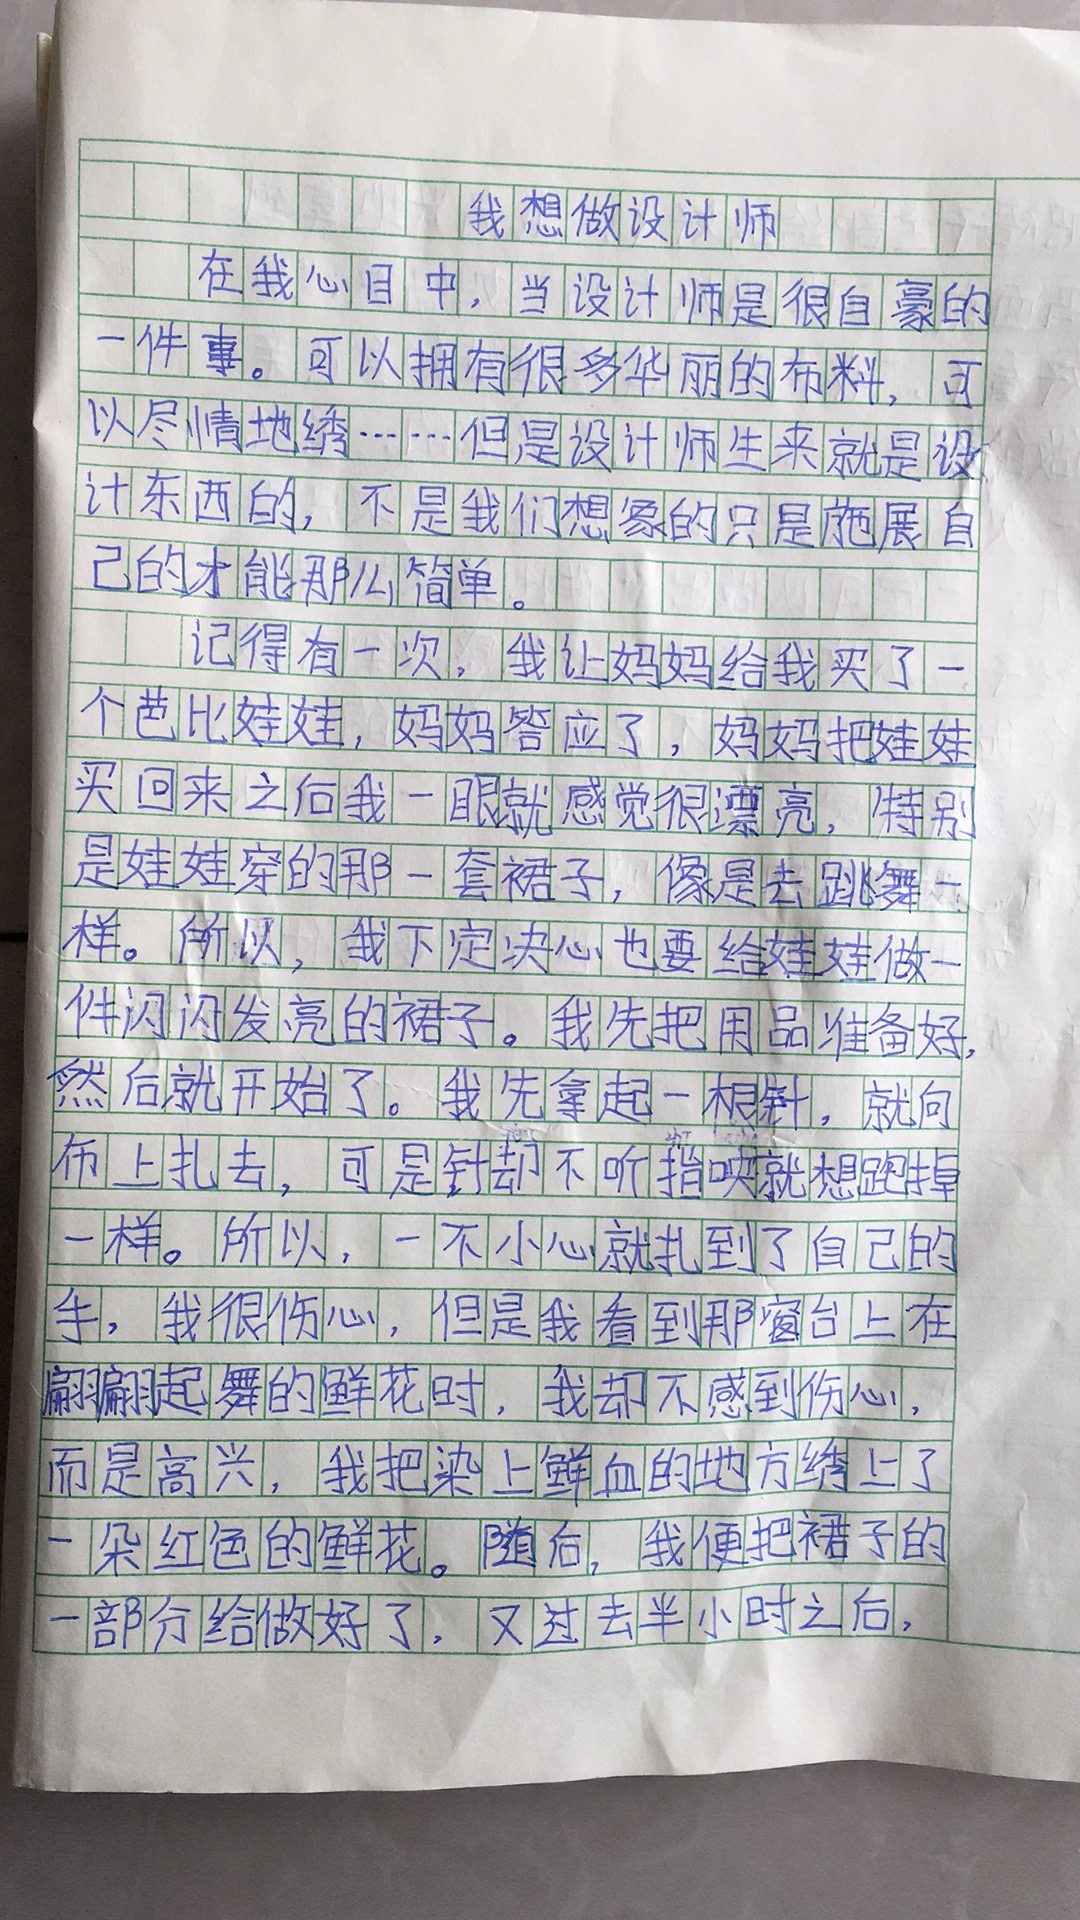 我想做设计师
在我心目中，当设计师是很自豪的
一件事。可以拥有很多华丽的布料，可
以尽情地绣……但是设计师生来就是设
计东西的，不是我们想象的只是施展自
己的才能那么简单。
记得有一次，我让妈妈给我买了一
个芭比娃娃，妈妈答应了，妈妈把娃娃
买回来之后我一眼就感觉很漂亮，特别
是娃娃穿的那一套裙子，像是去跳舞一
样。所以，我下定决心也要给娃娃做一
件闪闪发亮的裙子。我先把用品准备好，
然后就开始了。我先拿起一根针，就向
布上扎去，可是针却不听指唤就想跑掉
一样。所以，一不小心就扎到了自己的
手，我很伤心，但是我看到那窗台上在
翩翩起舞的鲜花时，我却不感到伤心，
而是高兴，我把染上鲜血的地方绣上了
一朵红色的鲜花。随后，我便把裙子的
一部分给做好了，又过去半小时之后，